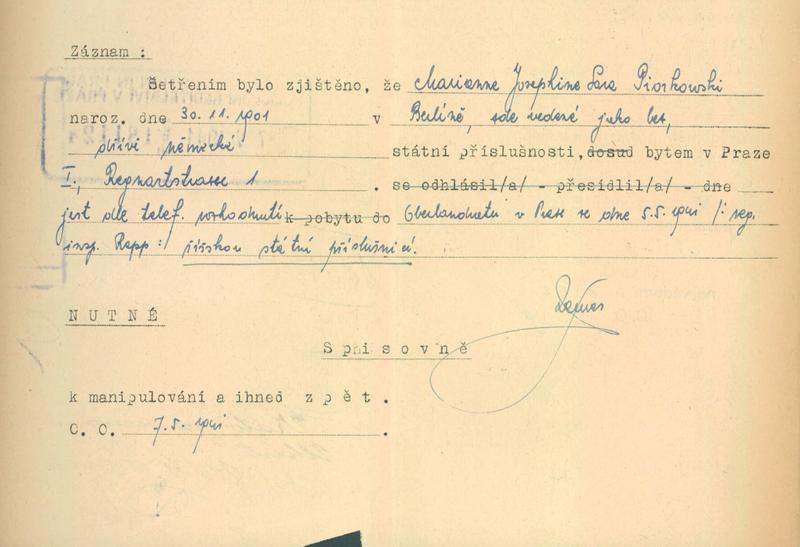 Záznam :
Šetřením bylo zjištěno, že Marianne Josephine Sara Piorkowski
naroz. dne 30.11.1901 v Berlíně, zde vedené jako
dříve německé státní příslušnosti, dosud bytem v Praze
I., Regnartstrasse 1 . se odhlásil/a/ - přesídlil/a/ - dne
jest dle telef. rozhodnutí k pobytu do Oberlandratu v Praze ze dne 5.5.1941 /: reg.
insp. Rapp :/ říšskou státní příslušnicí.
NUTNÉ
Spisovně
k manipulování a ihned zpět.
C. O. 7.5.1941 .